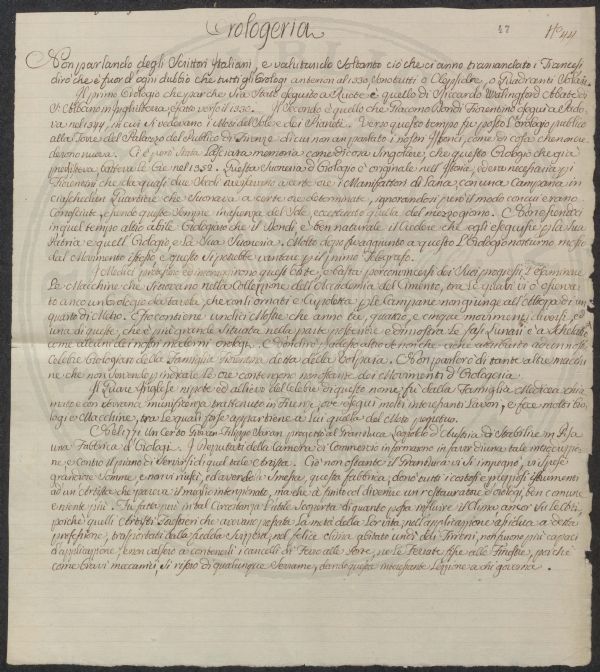 Orologeria
47
N.o 44
Non parlando degli Scrittori Italiani, e valutando soltanto ciò che ci anno tramandato i Francesi
dirò che è fuor d'ogni dubbio che tutti gli Orologi anteriori al 1330, sono tutti o Clepsidre, o Quadranti Solari.
Il primo Orologio che pare sia stato eseguito a Ruote è quello di Riccardo Walingford Abate di
S. Albano in Inghilterra, e fatto verso il 1330. Il secondo è quello che Giacomo Dondi Fiorentino eseguì a Pado-
va nel 1344, in cui si vedevano i Moti del Sole e dei Pianeti. Verso questo tempo fu posto l'orologio pubblico
alla Torre del Palazzo del Pubblico di Firenze di cui non an parlato i nostri Istorici, come di cosa che non cre-
derono nuova. Ci è però stata lasciata memoria come di cosa Singolare, che questo Orologio che già
batteva le Ore nel 1352. Questa Suoneria d'Orologio è originale nell'Istoria, ed era necessaria pei
Fiorentini che da quasi due Secoli avvisavano a certe ore i Manifattori di Lana, con una Campana in
ciaschedun Quartiere che Suonava a certe ore determinate, ignorandosi però il modo con cui erano
conosciute, essendo queste sempre in eguaglianza del Sole, eccettuato quella del mezzogiorno.
in quel tempo altro abile Orologiaro che il Dondi, è ben naturale il credere che egli eseguisse per la sua
Patria e quell'Orologio e la sua Suoneria. Molto dopo fu aggiunto a questo l'Orologio notturno mosso
dal Movimento stesso e questo si potrebbe vantare per il primo Telegrafo.
I Medici protessero ed incoraggirono quest'Arte, e basta per convincersi dei suoi progressi l'esaminare
le Macchine che si trovano nella Collezione dell'Accademia del Cimento, tra le quali vi è
anco un Orologio da tavola, che con li ornati e Cupoletta per le Campane non giunge all'altezza di un
quarto di Metro. Esso contiene undici Mostre che anno tre, quattro, e cinque movimenti diversi, ed
una di queste, che è più grande situata nella parte posteriore e dimostra le fasi Lunari, è a
come alcuni dei nostri moderni orologi.
Celebre Orologiaro della Famiglia Fiorentina detta della Volpaia. Non parlerò di tante altre macchi-
ne che non servendo a misurare le ore contengono nonostante dei Movimenti d'Orologeria.
nipote ed allievo del celebre di questo nome, fu dalla Famiglia Medicea chia-
mato e con sovrana munificenza trattenuto in Firenze, ove eseguì molti interessanti Lavori, e fece molti Oro-
logi e Macchine, tra le quali forse appartiene a lui quella del Moto perpetuo.
un Certo Giovan Filippo progettò al Granduca Leopoldo d'Austria di stabilire in Pisa
una Fabbrica d'Orologi. I Deputati della Camera di Commercio informarono in favor d'una tale intrapre-
e contro il piano di servirsi di quel tale Artista. Ciò non ostante il Granduca vi si impegnò, vi spese
grandiose Somme, e non vi riuscì, ed avendo dismessa, questa fabbrica, donò tutti i costosi e preziosi istrumenti
ad un Artista che pareva il meglio intenzionato, ma che à finito col divenire un restauratore d'orologi, ben comune
e niente più. Fu fatta però in tal Circostanza l'utile scoperta di quanto possa influire il Clima ancor
poiché quelli Artisti Forestieri che avevano passata la metà della lor vita, nell'applicazione assidua a detta
professione, trasportati dalla fredda Svizzera, nel felice clima abitato un dì dai Tirreni, non furono più capaci
d'applicazione e non valsero a contenerli i cancelli di Ferro alle Porte, né le Ferrate fisse alle Finestre, poiché
come bravi meccanici, si risero di qualunque serrame, dando questa interessante Lezione a chi governa.